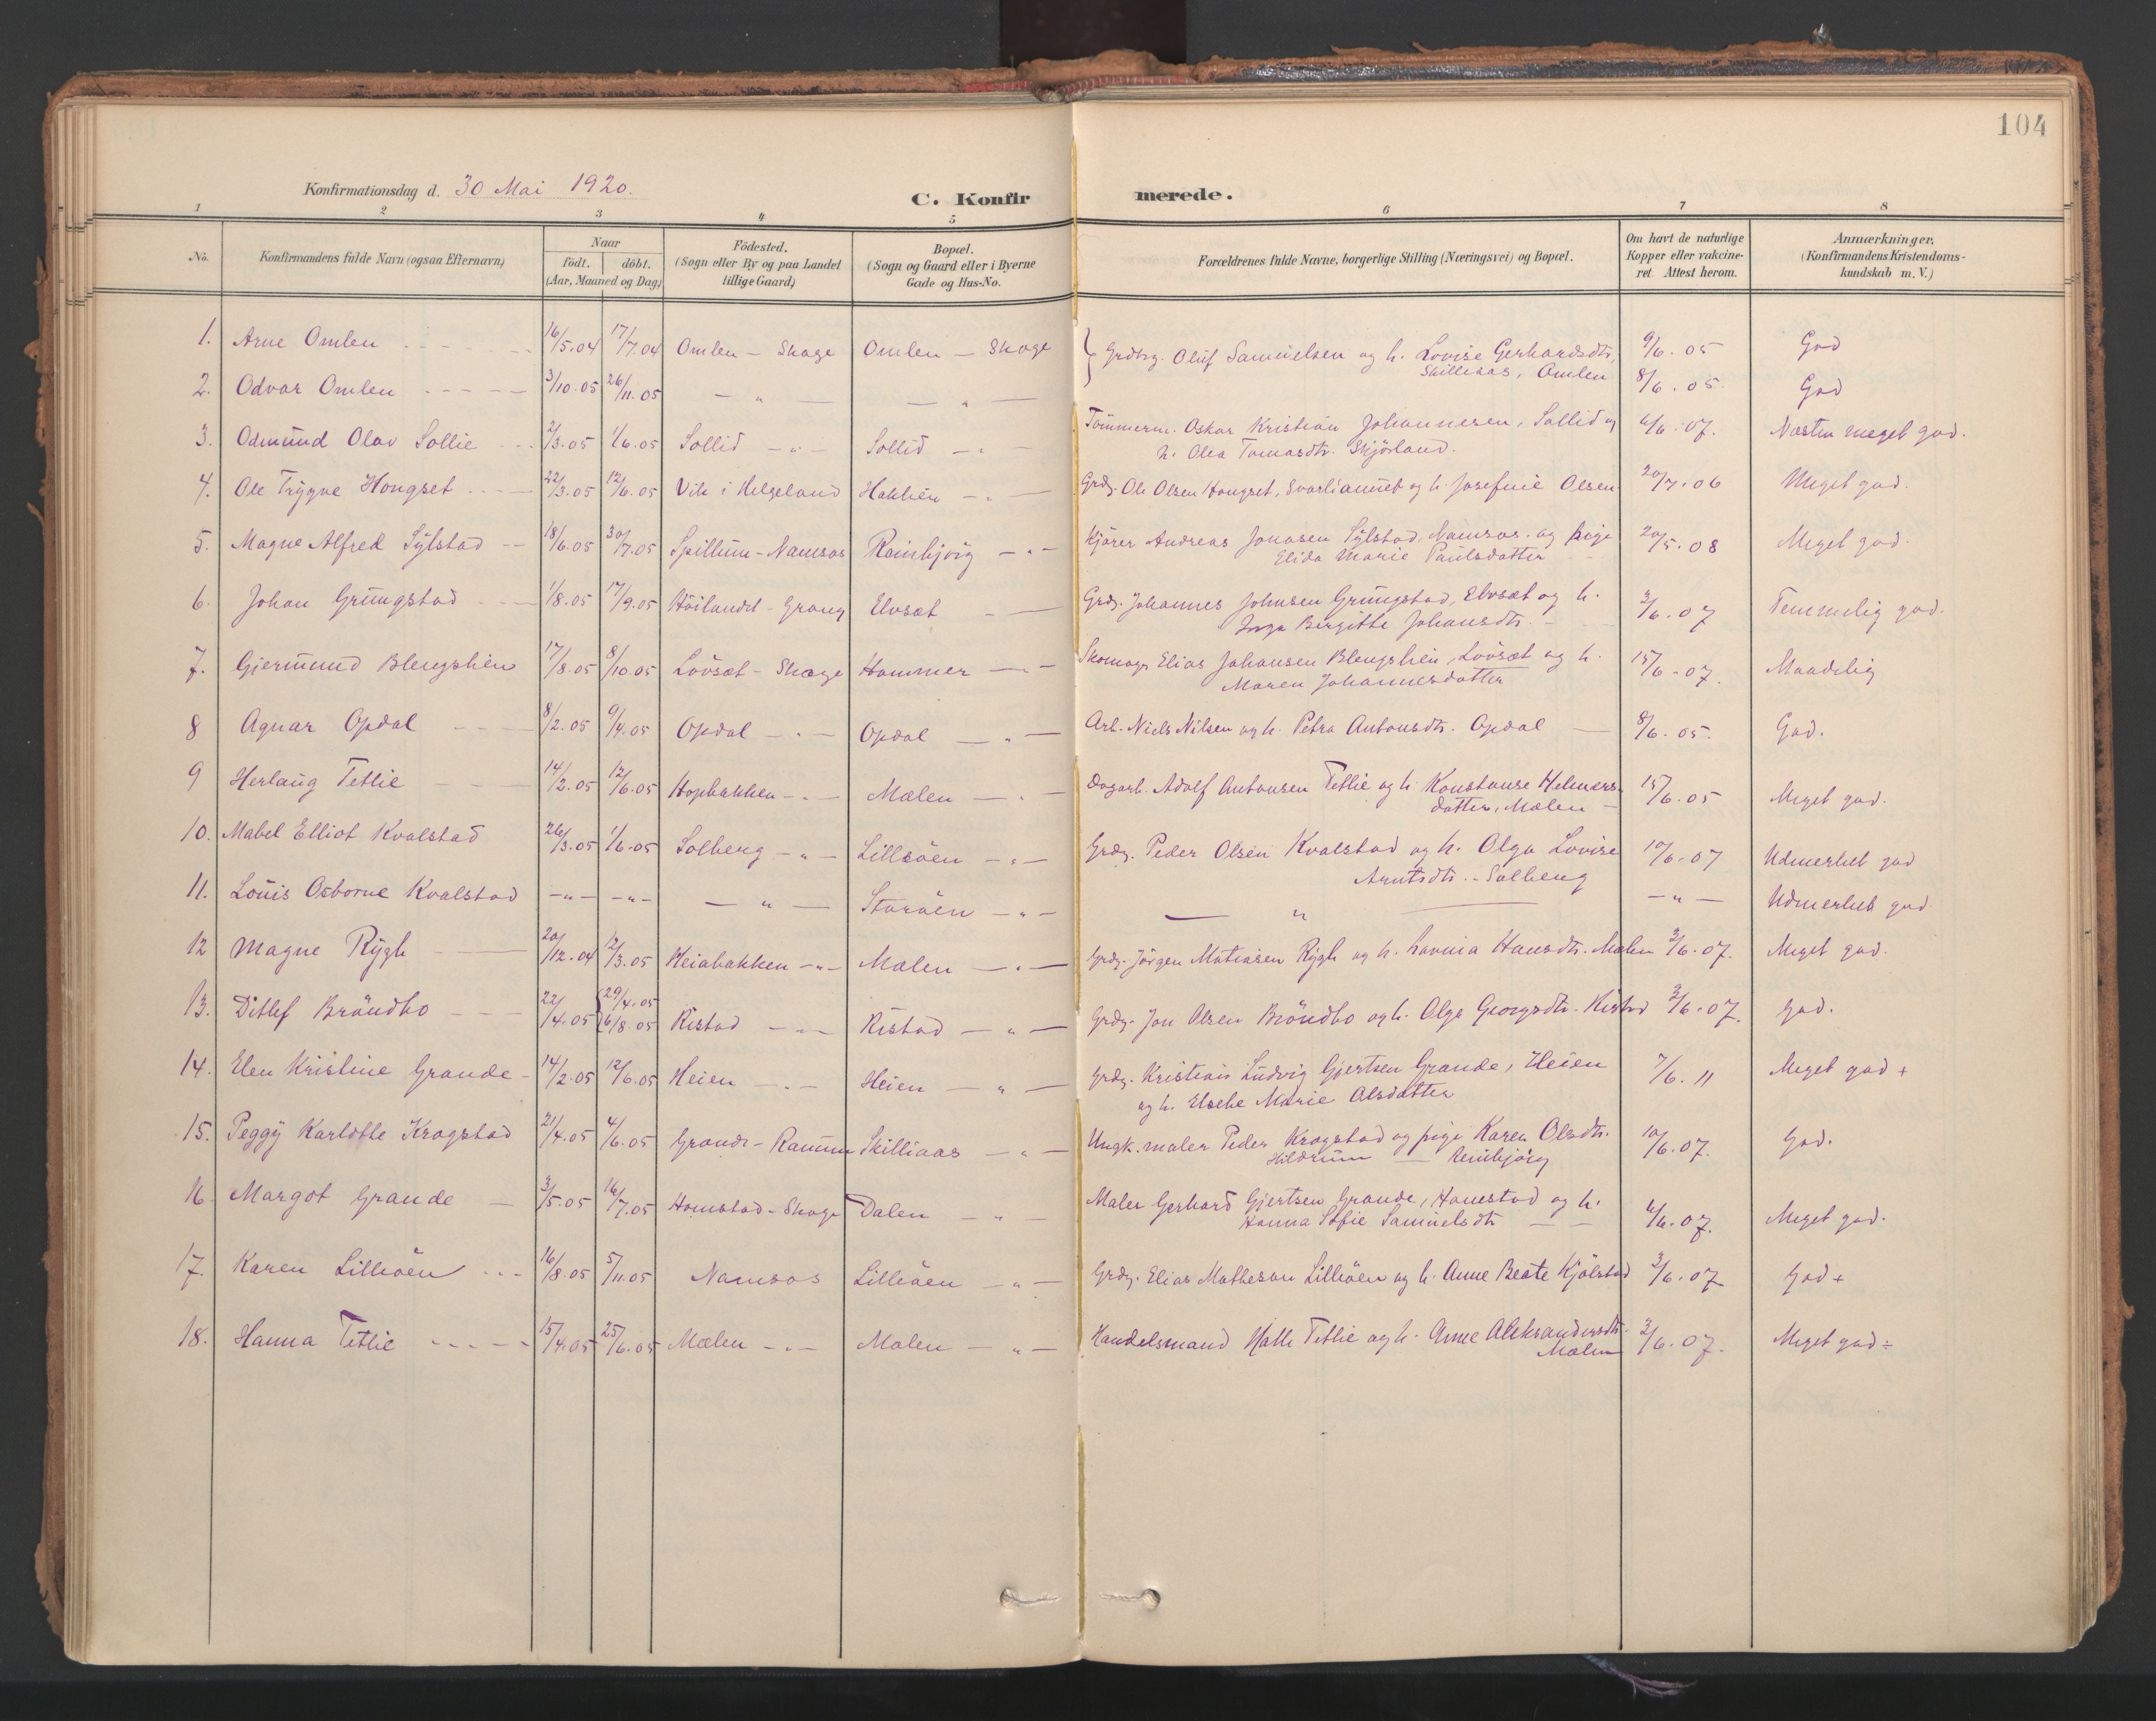 104
Konfirmationsdag d. 30 Mai 1920.
C. Konfirmerede.
1 2 3 4 5 6 7 8
No. Konfirmandens fulde Navn (ogsaa Efternavn) Naar født. døbt. (Aar, Maaned og Dag) Fødested. (Sogn eller By og paa Landet tillige Gaard) Bopæl. (Sogn og Gaard eller i Byerne Gade og Hus-No. Forældrenes fulde Navne, borgerlige Stilling (Næringsvei) og Bopæl. Om havt de naturlige Kopper eller vakcineret. Attest herom. Anmærkninger. (Konfirmandens Kristendomskundskab m. V.)
1. Arne Omlen 16/5.04 17/7.04 Omlen - Skage Omlen - Skage } Grdbrg. Oluf Samuelsen og h. Lovise Gerhardsdtr. 9/6.05 God
Skilleaas, Omlen
2. Odvar Omlen 3/10.05 26/11.05 — " — — " — 8/6.05. God
3. Odmund Olav Sollie 2/3.05 1/6.05 Sollid - " - Sollid - " - Tömmerm. Oskar Kristian Johannesen, Sollid og 6/6.07. Næsten meget god.
h. Olea Tomasdtr. Skjörland.
4. Ole Trygve Hongset 22/3.05 12/6.05 Vik i Helgeland Hakken - " - Grdr. Ole Olsen Hongset, Svarliaunet og h. Josefine Olsen 20/7.06 Meget god.
5. Magne Alfred Sylstad 18/6.05 30/7.05 Spillum - Namsos Reinbjörg - " - Kjörer Andreas Jonasen Sylstad, Namsos. og pige 20/5.08 Meget god.
Elida Marie Paulsdatter
6. Johan Grungstad 1/8.05 17/9.05 Höilandet - Grong Elvsæt - Grdr. Johannes Johnsen Grungstad, Elvsæt og h. 3/6.07 Temmelig god.
Inga Bergitte Johansdtr.
7. Gjermund Blengslien 17/8.05 8/10.05 Lövsæt - Skage Hammer - " - Skomagr Elias Johansen Blengslien, Lövsæt og h. 15/6.07. Maadelig
Maren Johannesdatter
8 Agnar Opdal 8/2.05 9/4.05 Opdal - " - Opdal - " - Arb. Niels Nilsen og h. Petra Antonsdtr. Opdal 8/6.05. God.
9 Herlaug Tetlie 14/2.05 12/6.05 Hopbakken - " - Mælen - " - Dagarb. Adolf Antonsen Tetlie og h. Konstanse Helmers- 15/6.05 Meget god.
datter, Mælen
10. Mabel Elliot Kvalstad 26/3.05 1/6.05 Solberg - " - Lilleöen - " - Grdr. Peder Olsen Kvalstad og h. Olga Lovise 10/6.07 Udmerket god
Arntsdtr. - Solberg
11. Louis Osborne Kvalstad - " - - " - — " — Storöen - " - — " — - " - Udmerket god
12 Magne Rygh 20/12.04 12/3.05 Heiabakken - " - Mælen - " - Grdr. Jörgen Matiasen Rygh og h. Lavnia Hansdtr. Mælen 3/6.07. Meget god.
13. Ditlef Bröndbo 22/4.05 {29/4.05 6/8.05 Ristad - " - Ristad - " - Grdr. Jon Olsen Bröndbo og h. Olga Georgsdtr. Ristad 3/6.07. God.
14. Elen Kristine Grande 14/2.05 12/6.05 Heien - " - Heien - " - Grdr. Kristian Ludvig Gjertsen Grande, Heien 7/6.11 Meget god +
og h. Elsebe Marie Olsdatter
15. Peggy Karlotte Kragstad 21/4.05 4/6.05 Grande - Ranum Skilliaas - " - Ungk. maler Peder Kragstad og pige Karen Olsdtr. 10/6.07. God.
Hildrum — Reinbjörg
16. Margot Grande 3/5.05 16/7.05 Homstad - Skage Dalen - " - Maler Gerhard Gjertsen Grande, Homstad og h. 6/6.07. Meget god.
Hanna Sofie Samuelsdtr
17. Karen Lilleöen 16/8.05 5/11.05 Namsos Lilleöen - " - Grdr. Elias Mathesen Lilleöen og h. Anne Beate Kjölstad 3/6.07 God +
18. Hanna Tetlie 15/4.05 25/6.05 Mælen - " - Mælen - " - Handelsmand Halle Tetlie og h. Anne Aleksandersdtr. 3/6.07. Meget god ÷
Mælen